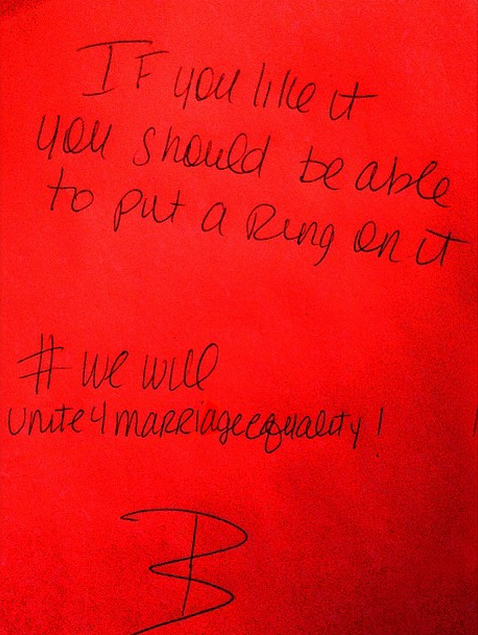 IF you like it
you should be able
to put a Ring on it
# we will
unite4marriageequality!
B